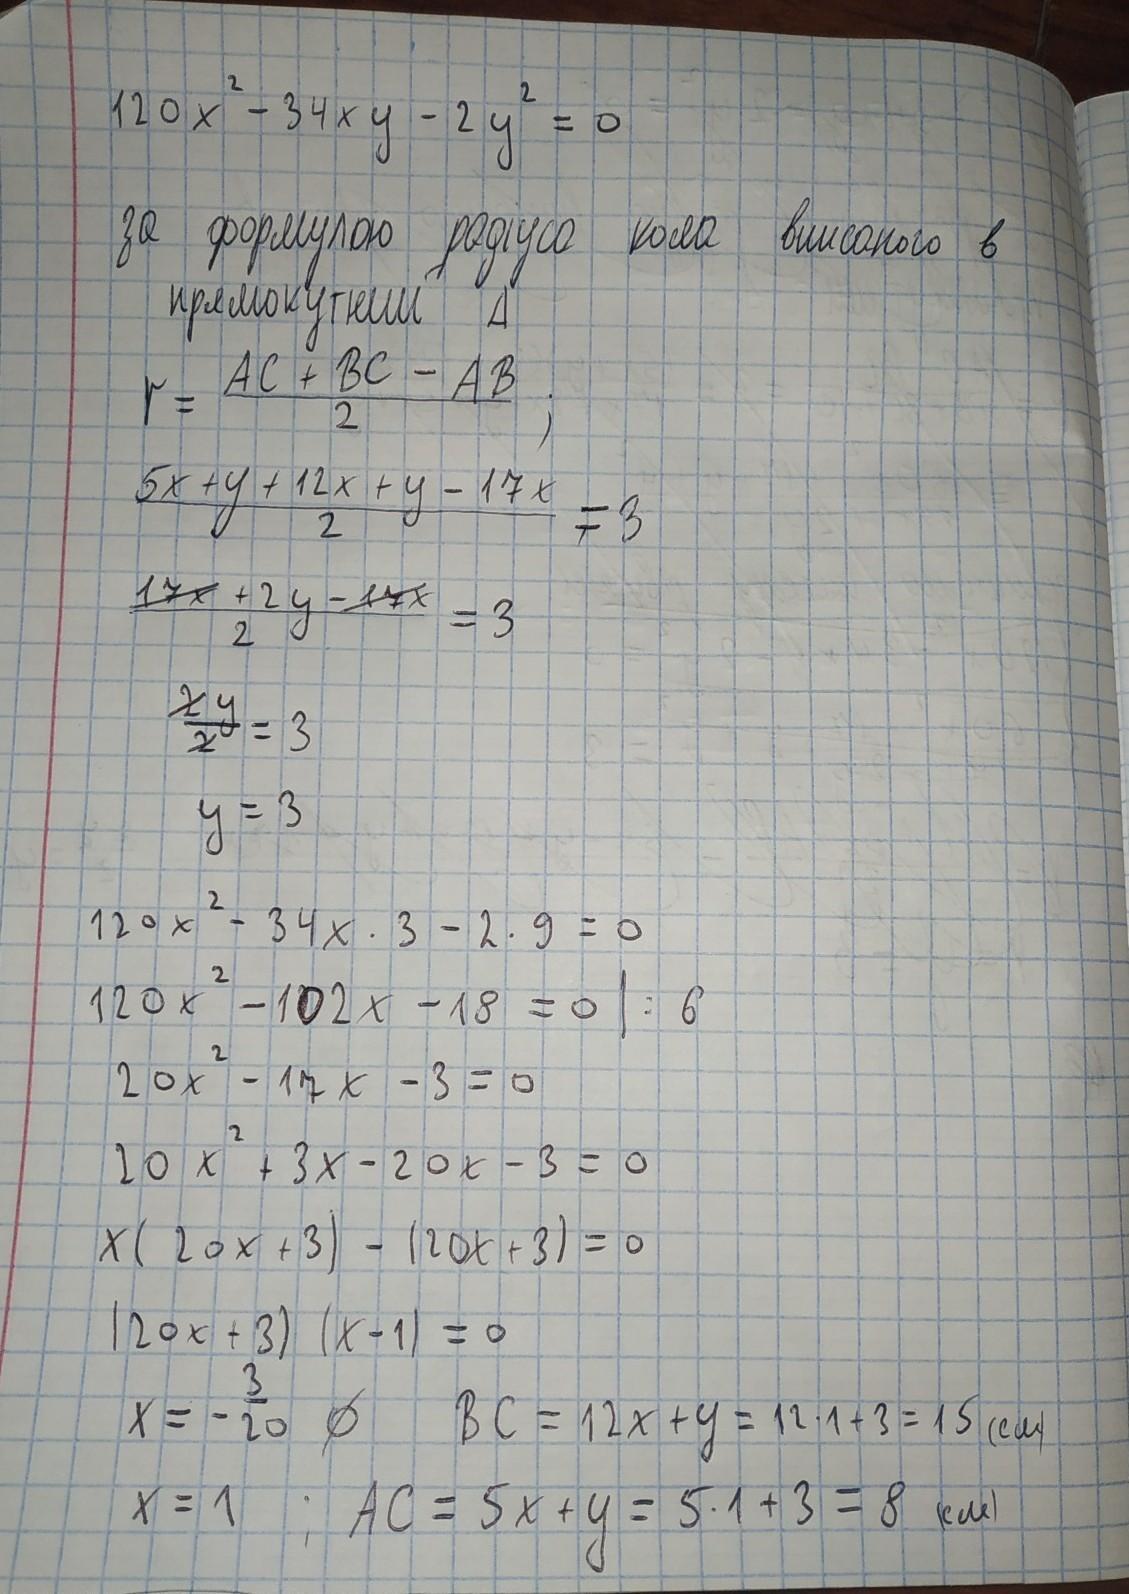 120x² - 34xy - 2y² = 0
за формулою радіуса кола вписаного в
прямокутний Δ
r = (AC + BC - AB)/2 ;
(5x + y + 12x + y - 17x)/2 = 3
(17x + 2y - 17x)/2 = 3
2y/2 = 3
y = 3
120x² - 34x · 3 - 2 · 9 = 0
120x² - 102x - 18 = 0 | : 6
20x² - 17x - 3 = 0
20x² + 3x - 20x - 3 = 0
x(20x + 3) - (20x + 3) = 0
(20x + 3) (x - 1) = 0
x = -3/20 ∅ BC = 12x + y = 12·1 + 3 = 15 (см)
x = 1 ; AC = 5x + y = 5·1 + 3 = 8 (см)